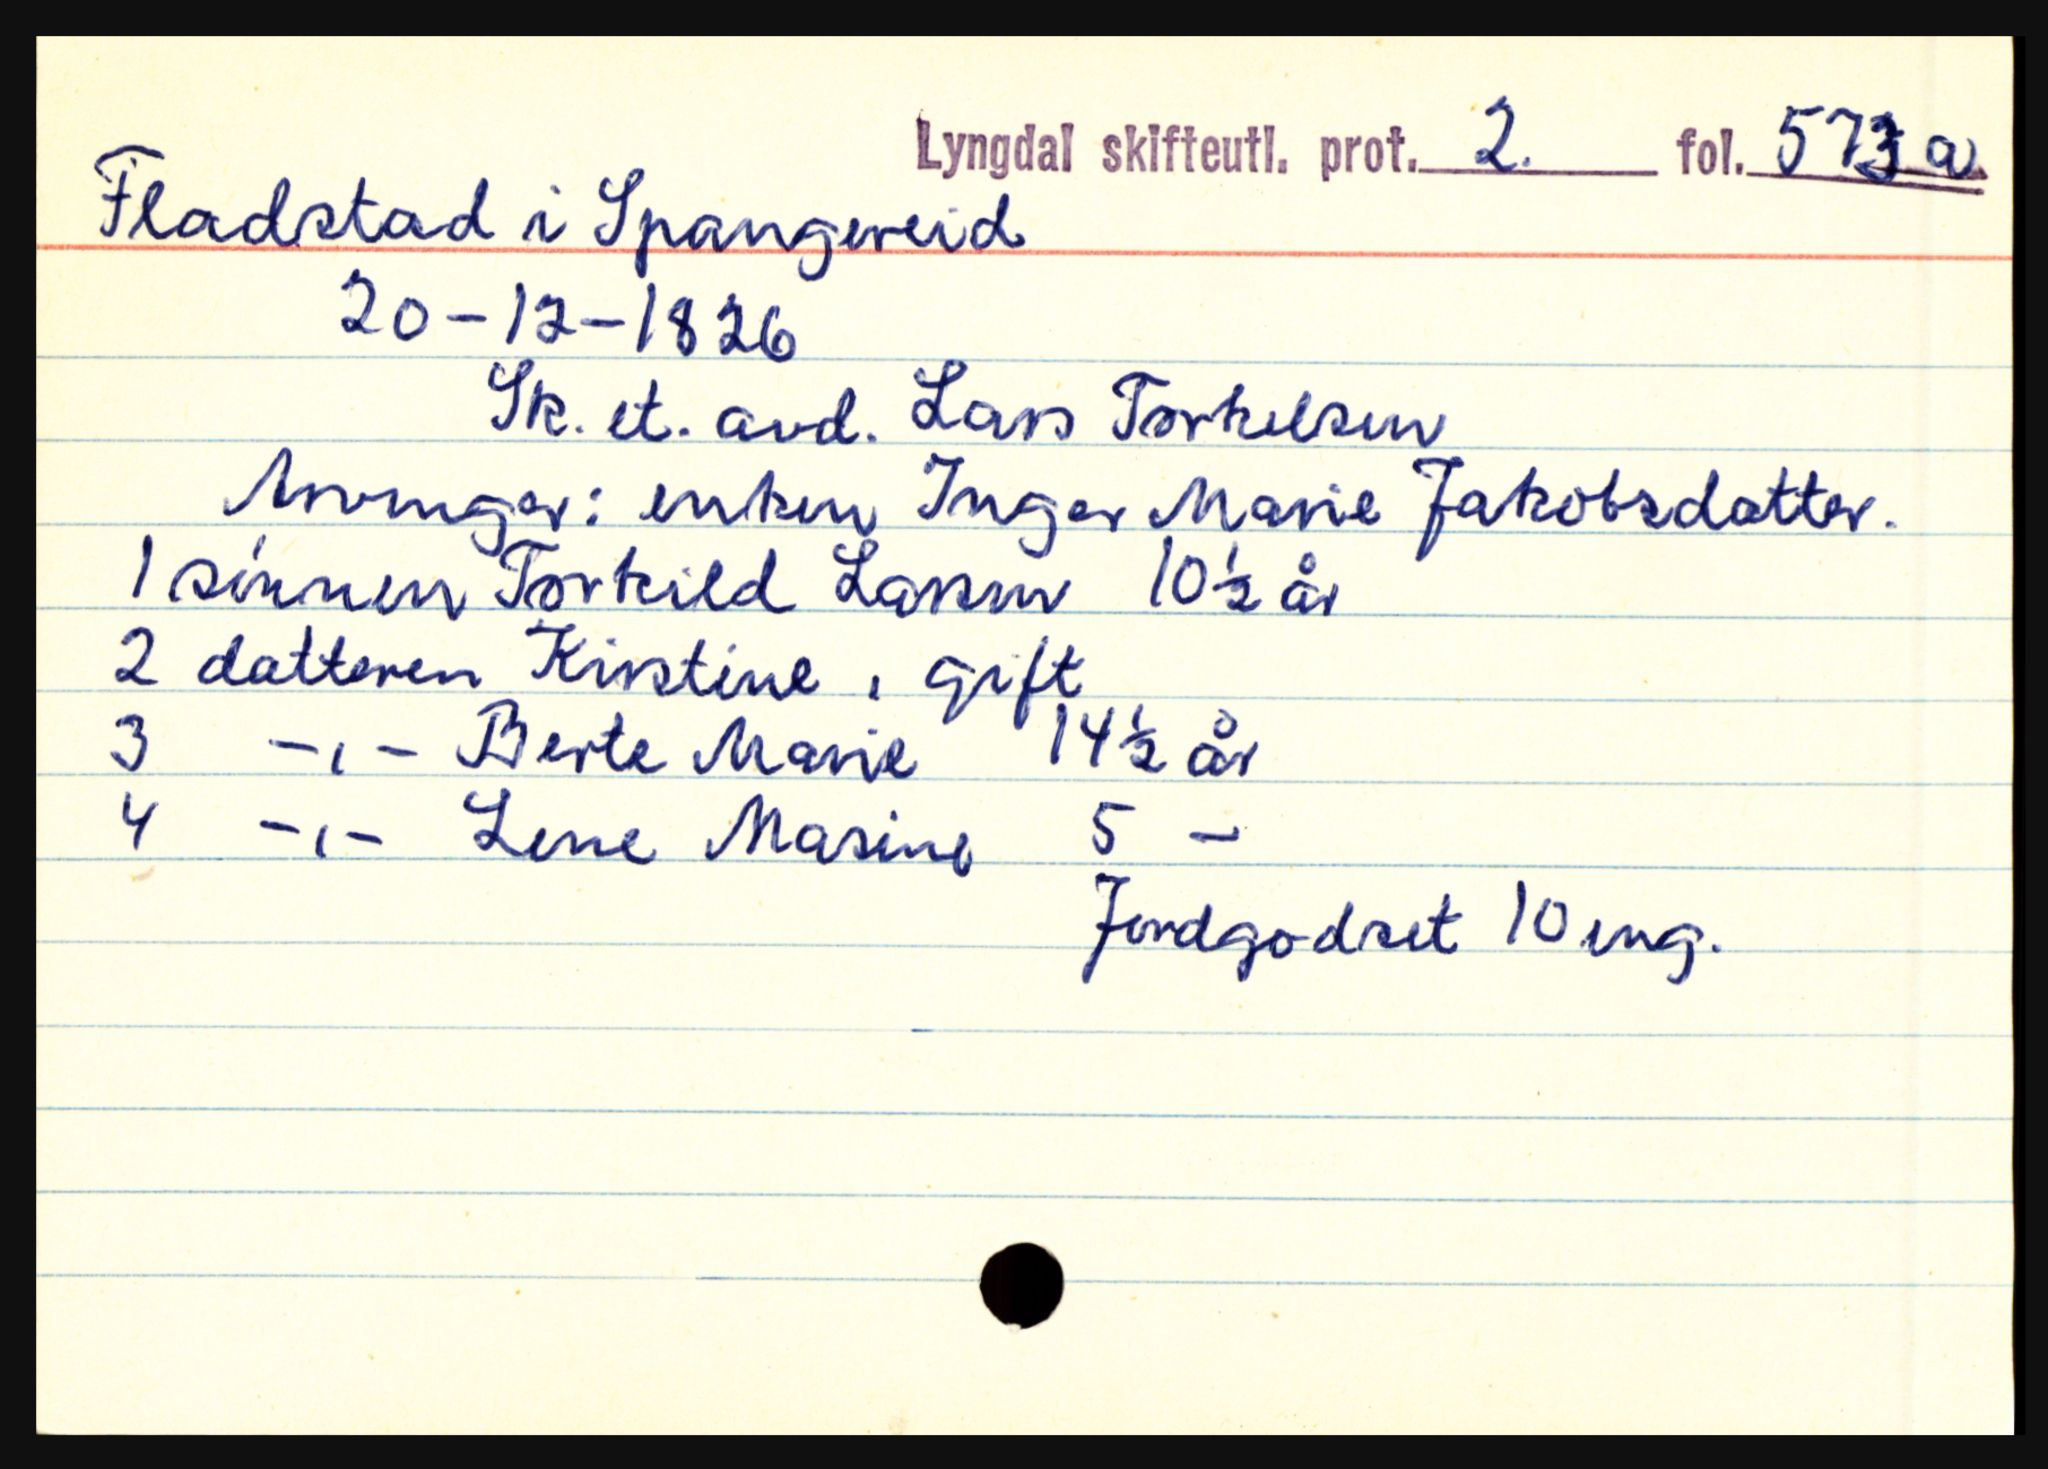 Lyngdal skifteutl. prot. 2. fol. 573 a
Fladstad i Spangereid
20-12-1826
Sk. et. avd. Lars Torkelsen
Arvinger: enken Inger Marie Jakobsdatter.
1 sönnen Torkild Larsen 10½ år
2 datteren Kirstine, gift
3 -,- Berte Marie 14½ år
4 -,- Lene Marine 5 -
Jordgodset 10 eng.